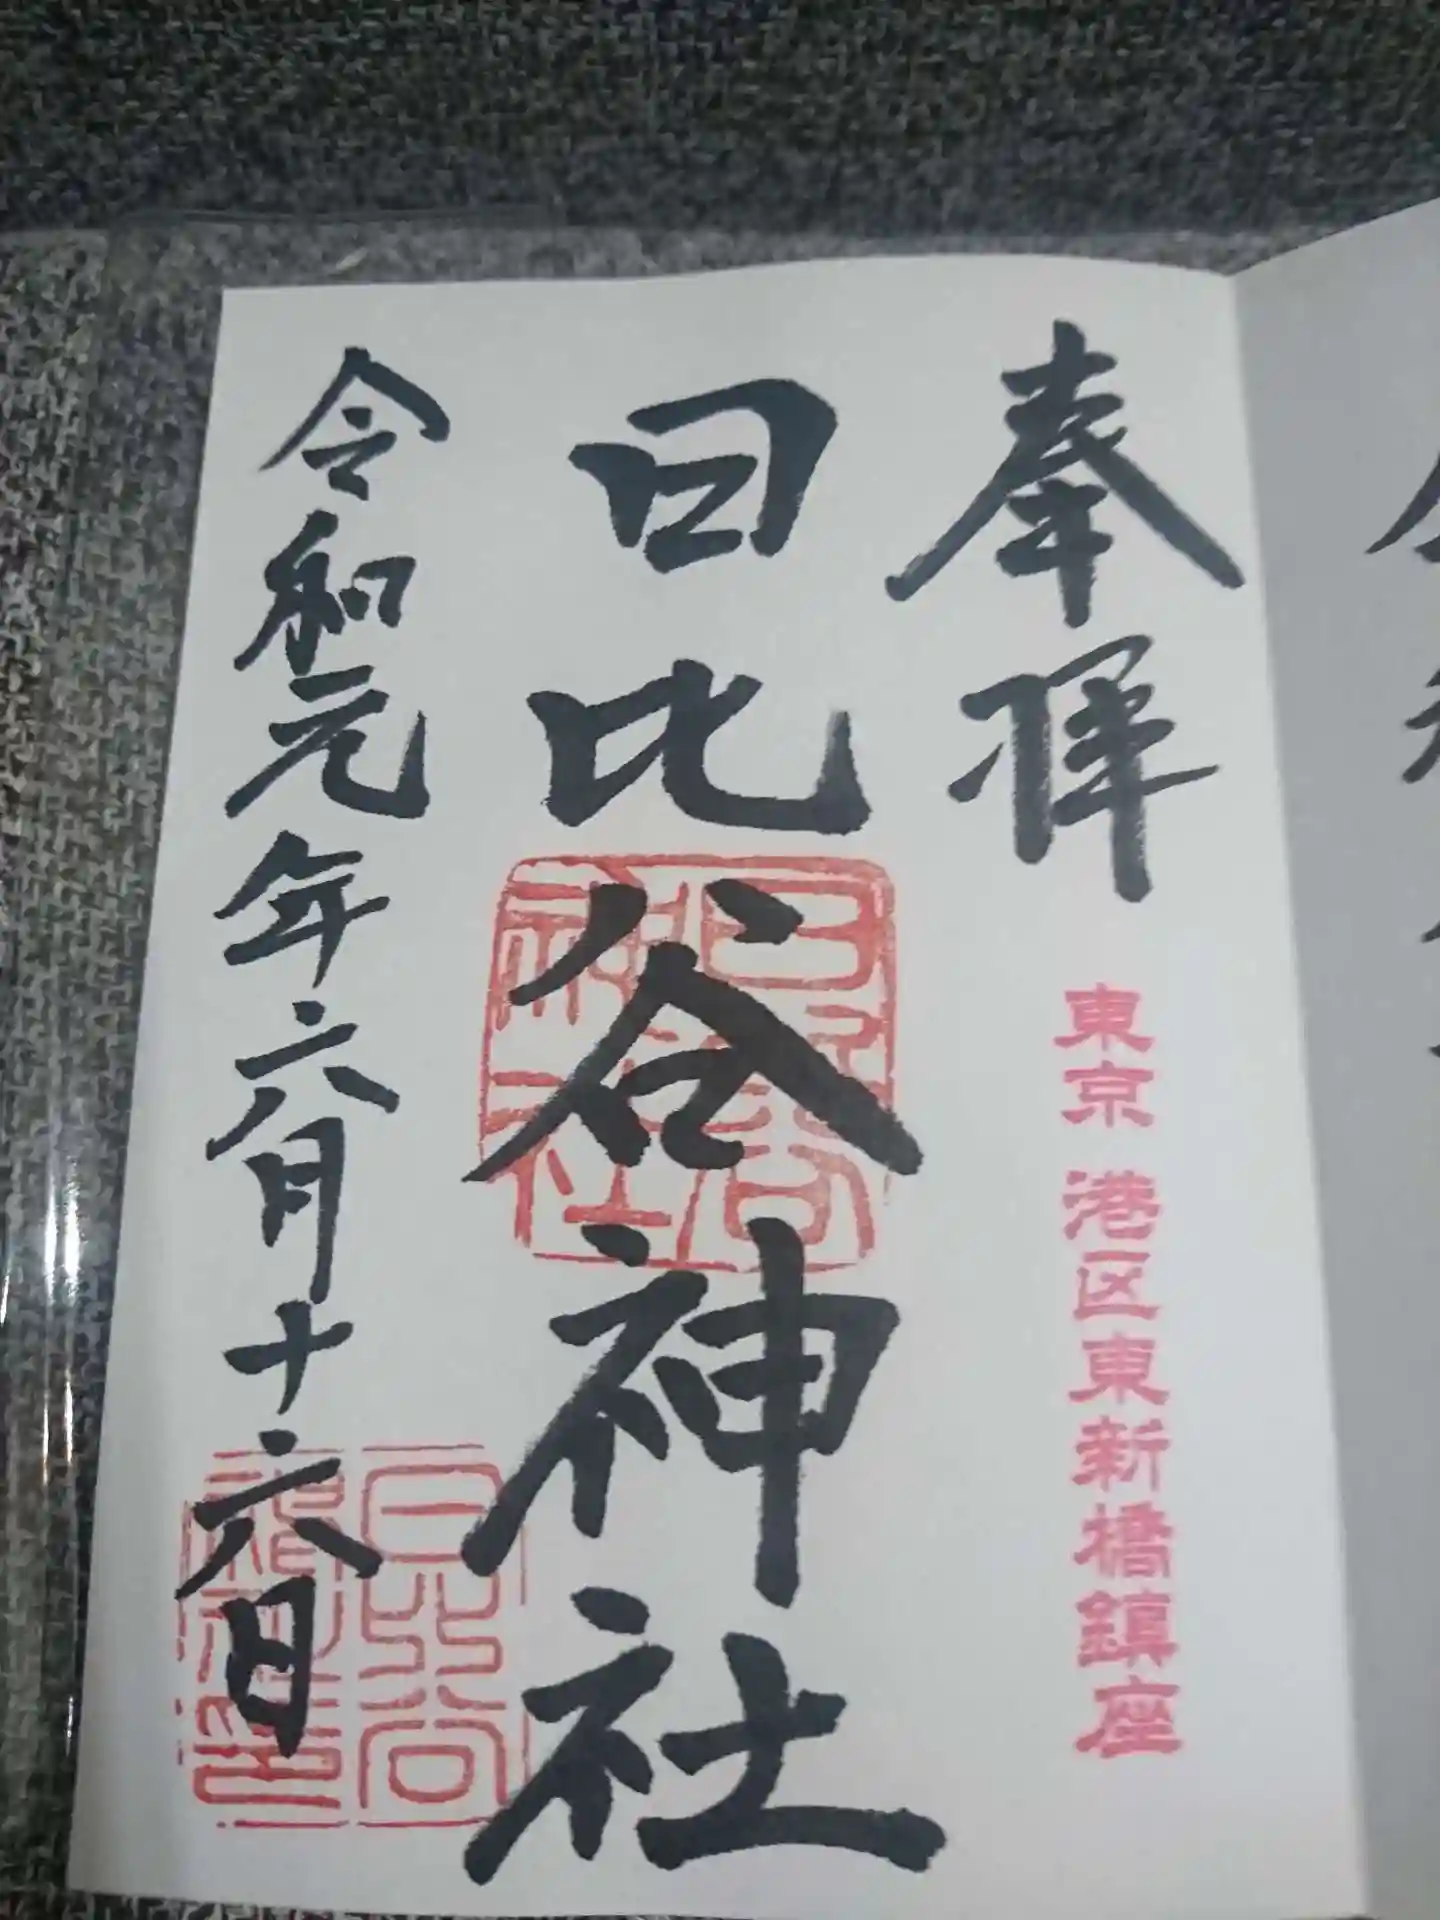 奉拝
東京 港区東新橋鎮座
日比谷神社
日比谷神社
令和元年六月十六日
日比谷神社